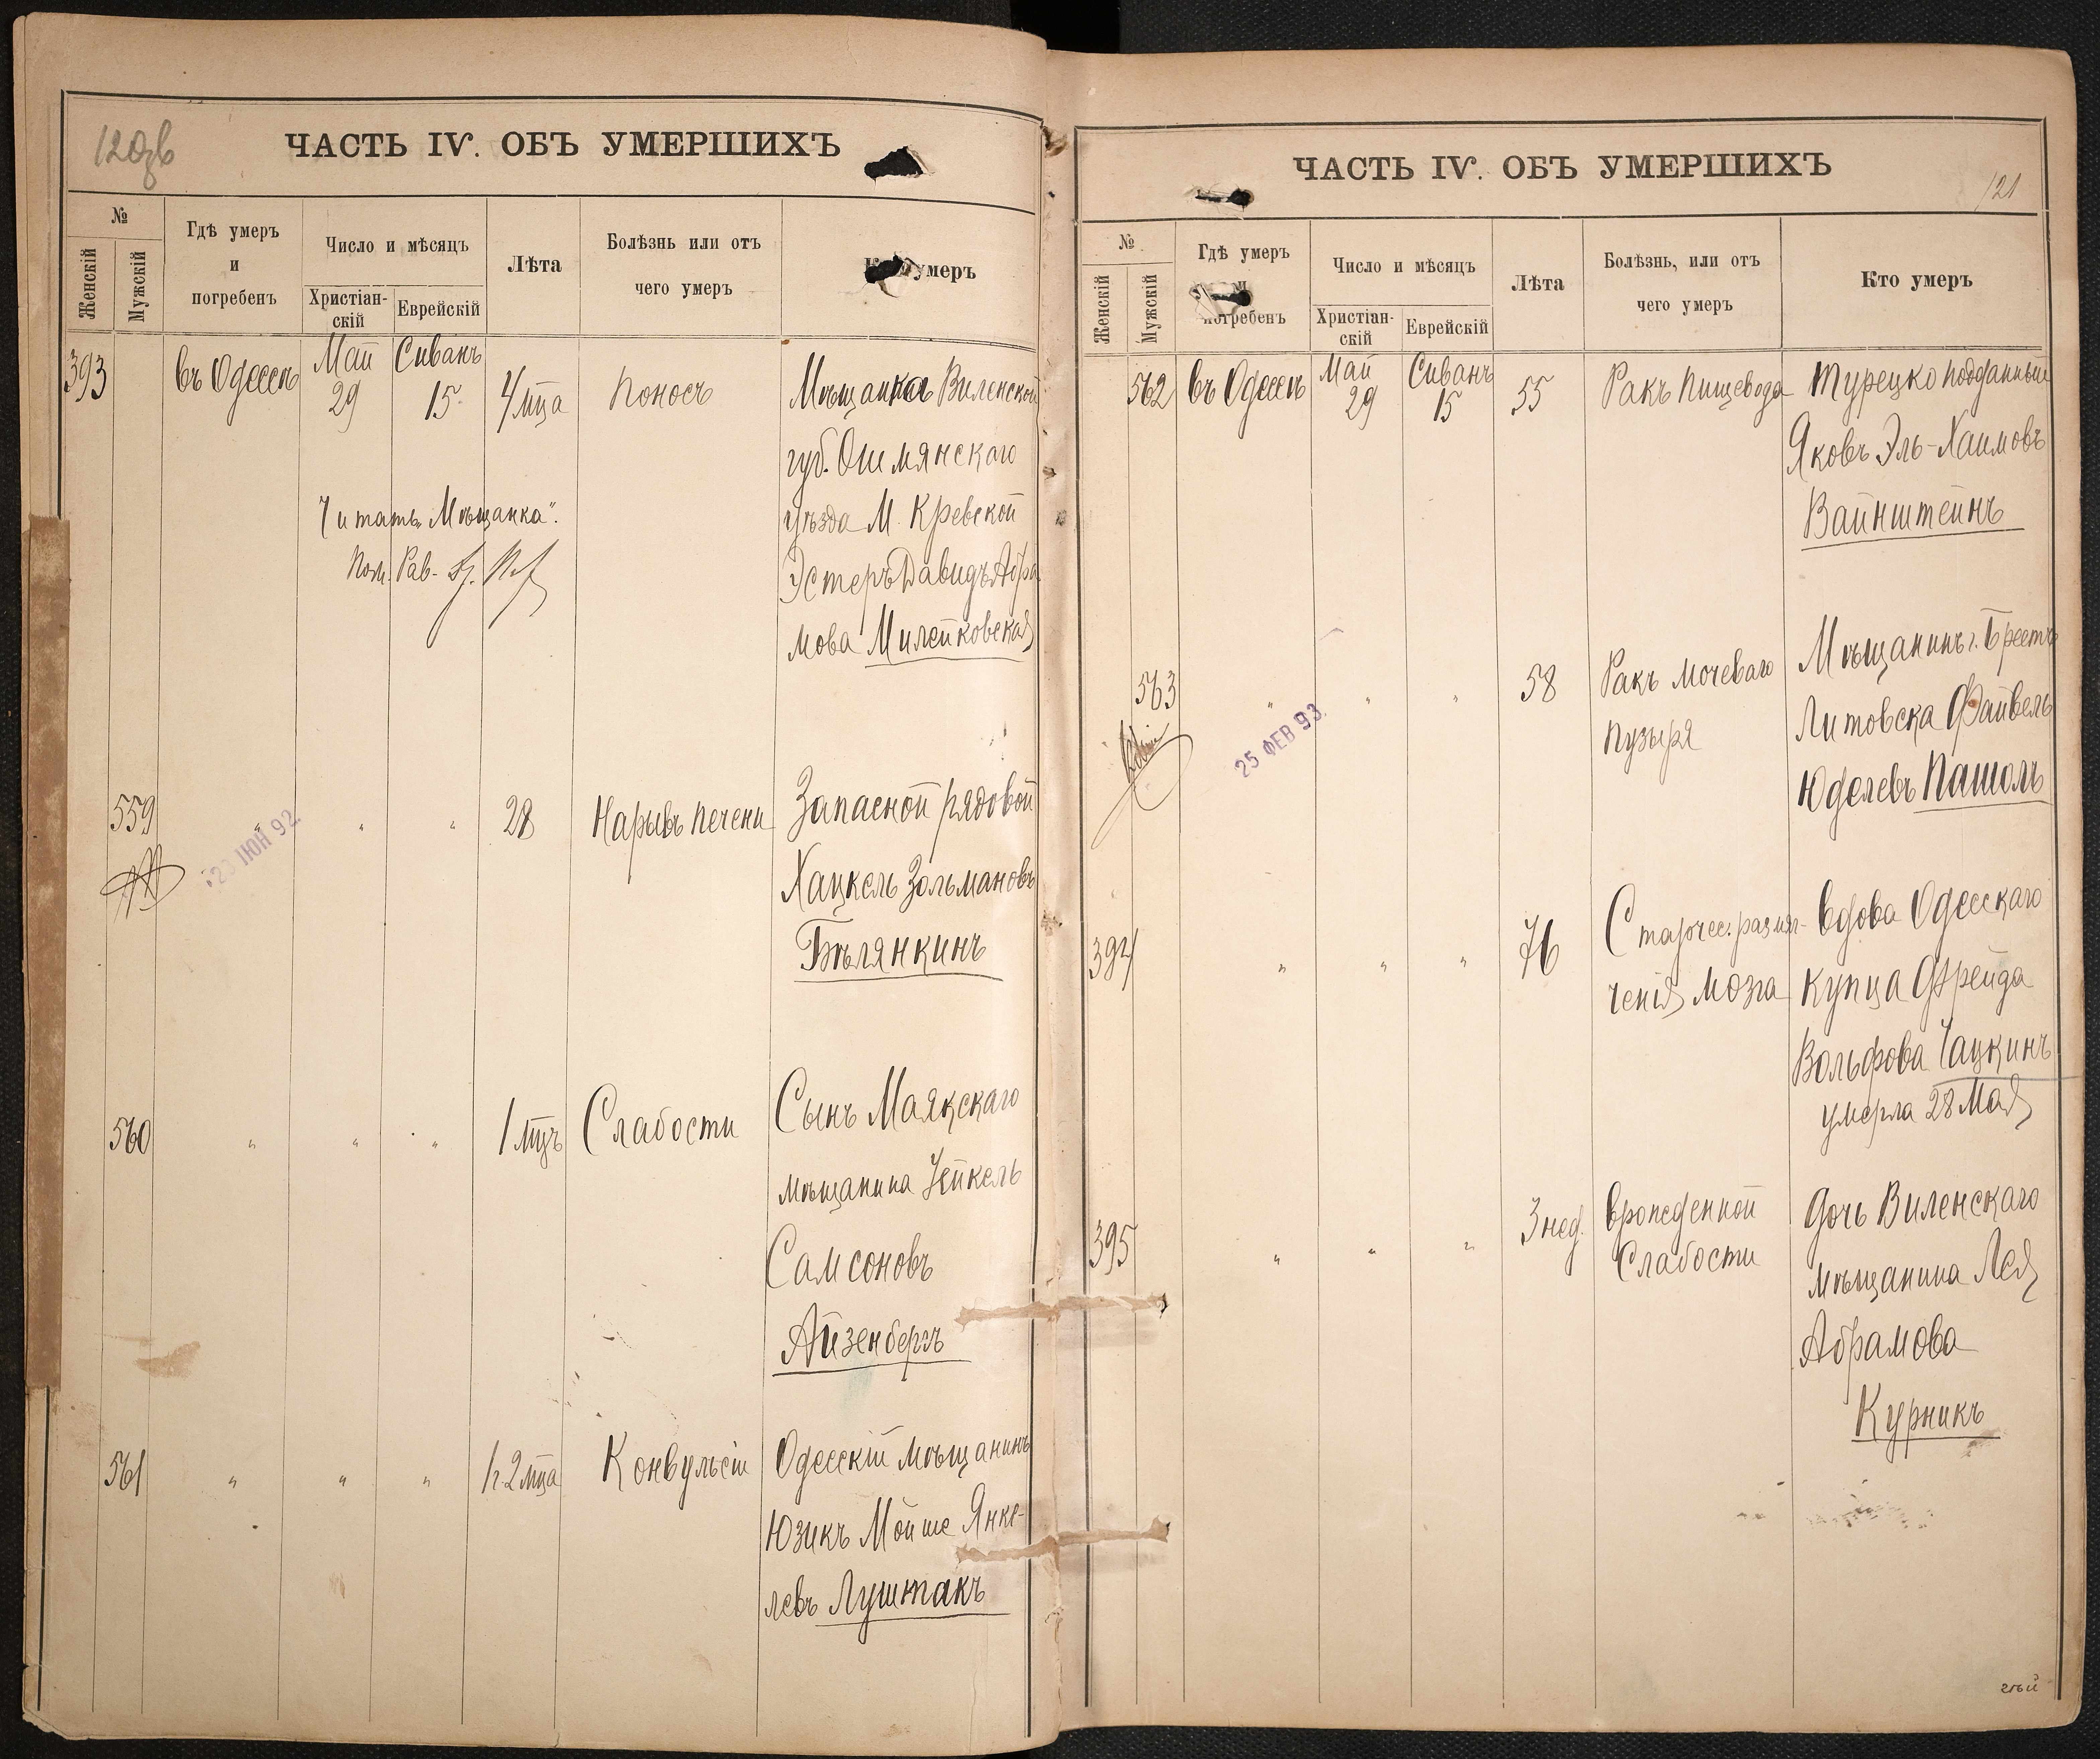 120об
ЧАСТЬ IV. ОБЪ УМЕРШИХЪ
№
Женскій
Мужскій
Гдѣ умеръ
и
погребенъ
Число и мѣсяцъ
Христіан-
скій
Еврейскій
Лѣта
Болѣзнь или отъ
чего умеръ
умеръ
393
въ Одессѣ
Май
29
Сиванъ
15
4 мца
Поносъ
Мѣщанка Виленской
губ. Ошмянскаго
уѣзда М. Кревской
Эстеръ Давидъ Абра
мова Милейковская
Читать „Мѣщанка".
Пом. Рав.
559
"
"
"
28
Нарывъ печени
Запасной рядовой
Хацкель Зольмановъ
Бѣлянкинъ
ІЮН 92.
560
"
"
"
1 мцъ
Слабости
Сынъ Маякскаго
мѣщанина
Самсоновъ
Айзенбергъ
561
"
"
"
1 г. 2 мца
Конвульсіи
Одесскій мѣщанинъ
Юзикъ Мойше Янке-
левъ Луштакъ
ЧАСТЬ IV. ОБЪ УМЕРШИХЪ
121
№
Женскій
Мужскій
Гдѣ умеръ
и
погребенъ
Число и мѣсяцъ
Христіан-
скій
Еврейскій
Лѣта
Болѣзнь, или отъ
чего умеръ
Кто умеръ
562
въ Одессѣ
Май
29
Сиванъ
15
55
Ракъ пищевода
Турецко подданный
Яковъ Эль-Хаимовъ
Вайнштейнъ
563
"
"
"
58
Ракъ мочеваго
пузыря
Мѣщанинъ г. Брестъ
Литовска Файвель
Юделевъ Пашоль
25 ФЕВ 93.
394
"
"
"
76
Старчес. размяг-
ченія мозга
Вдова Одесскаго
купца Фрейда
Вольфова Чацкинъ
умерла 28 Мая
395
"
"
"
3 нед.
Врожденной
Слабости
Дочь Виленскаго
мѣщанина Лея
Абрамова
Курникъ